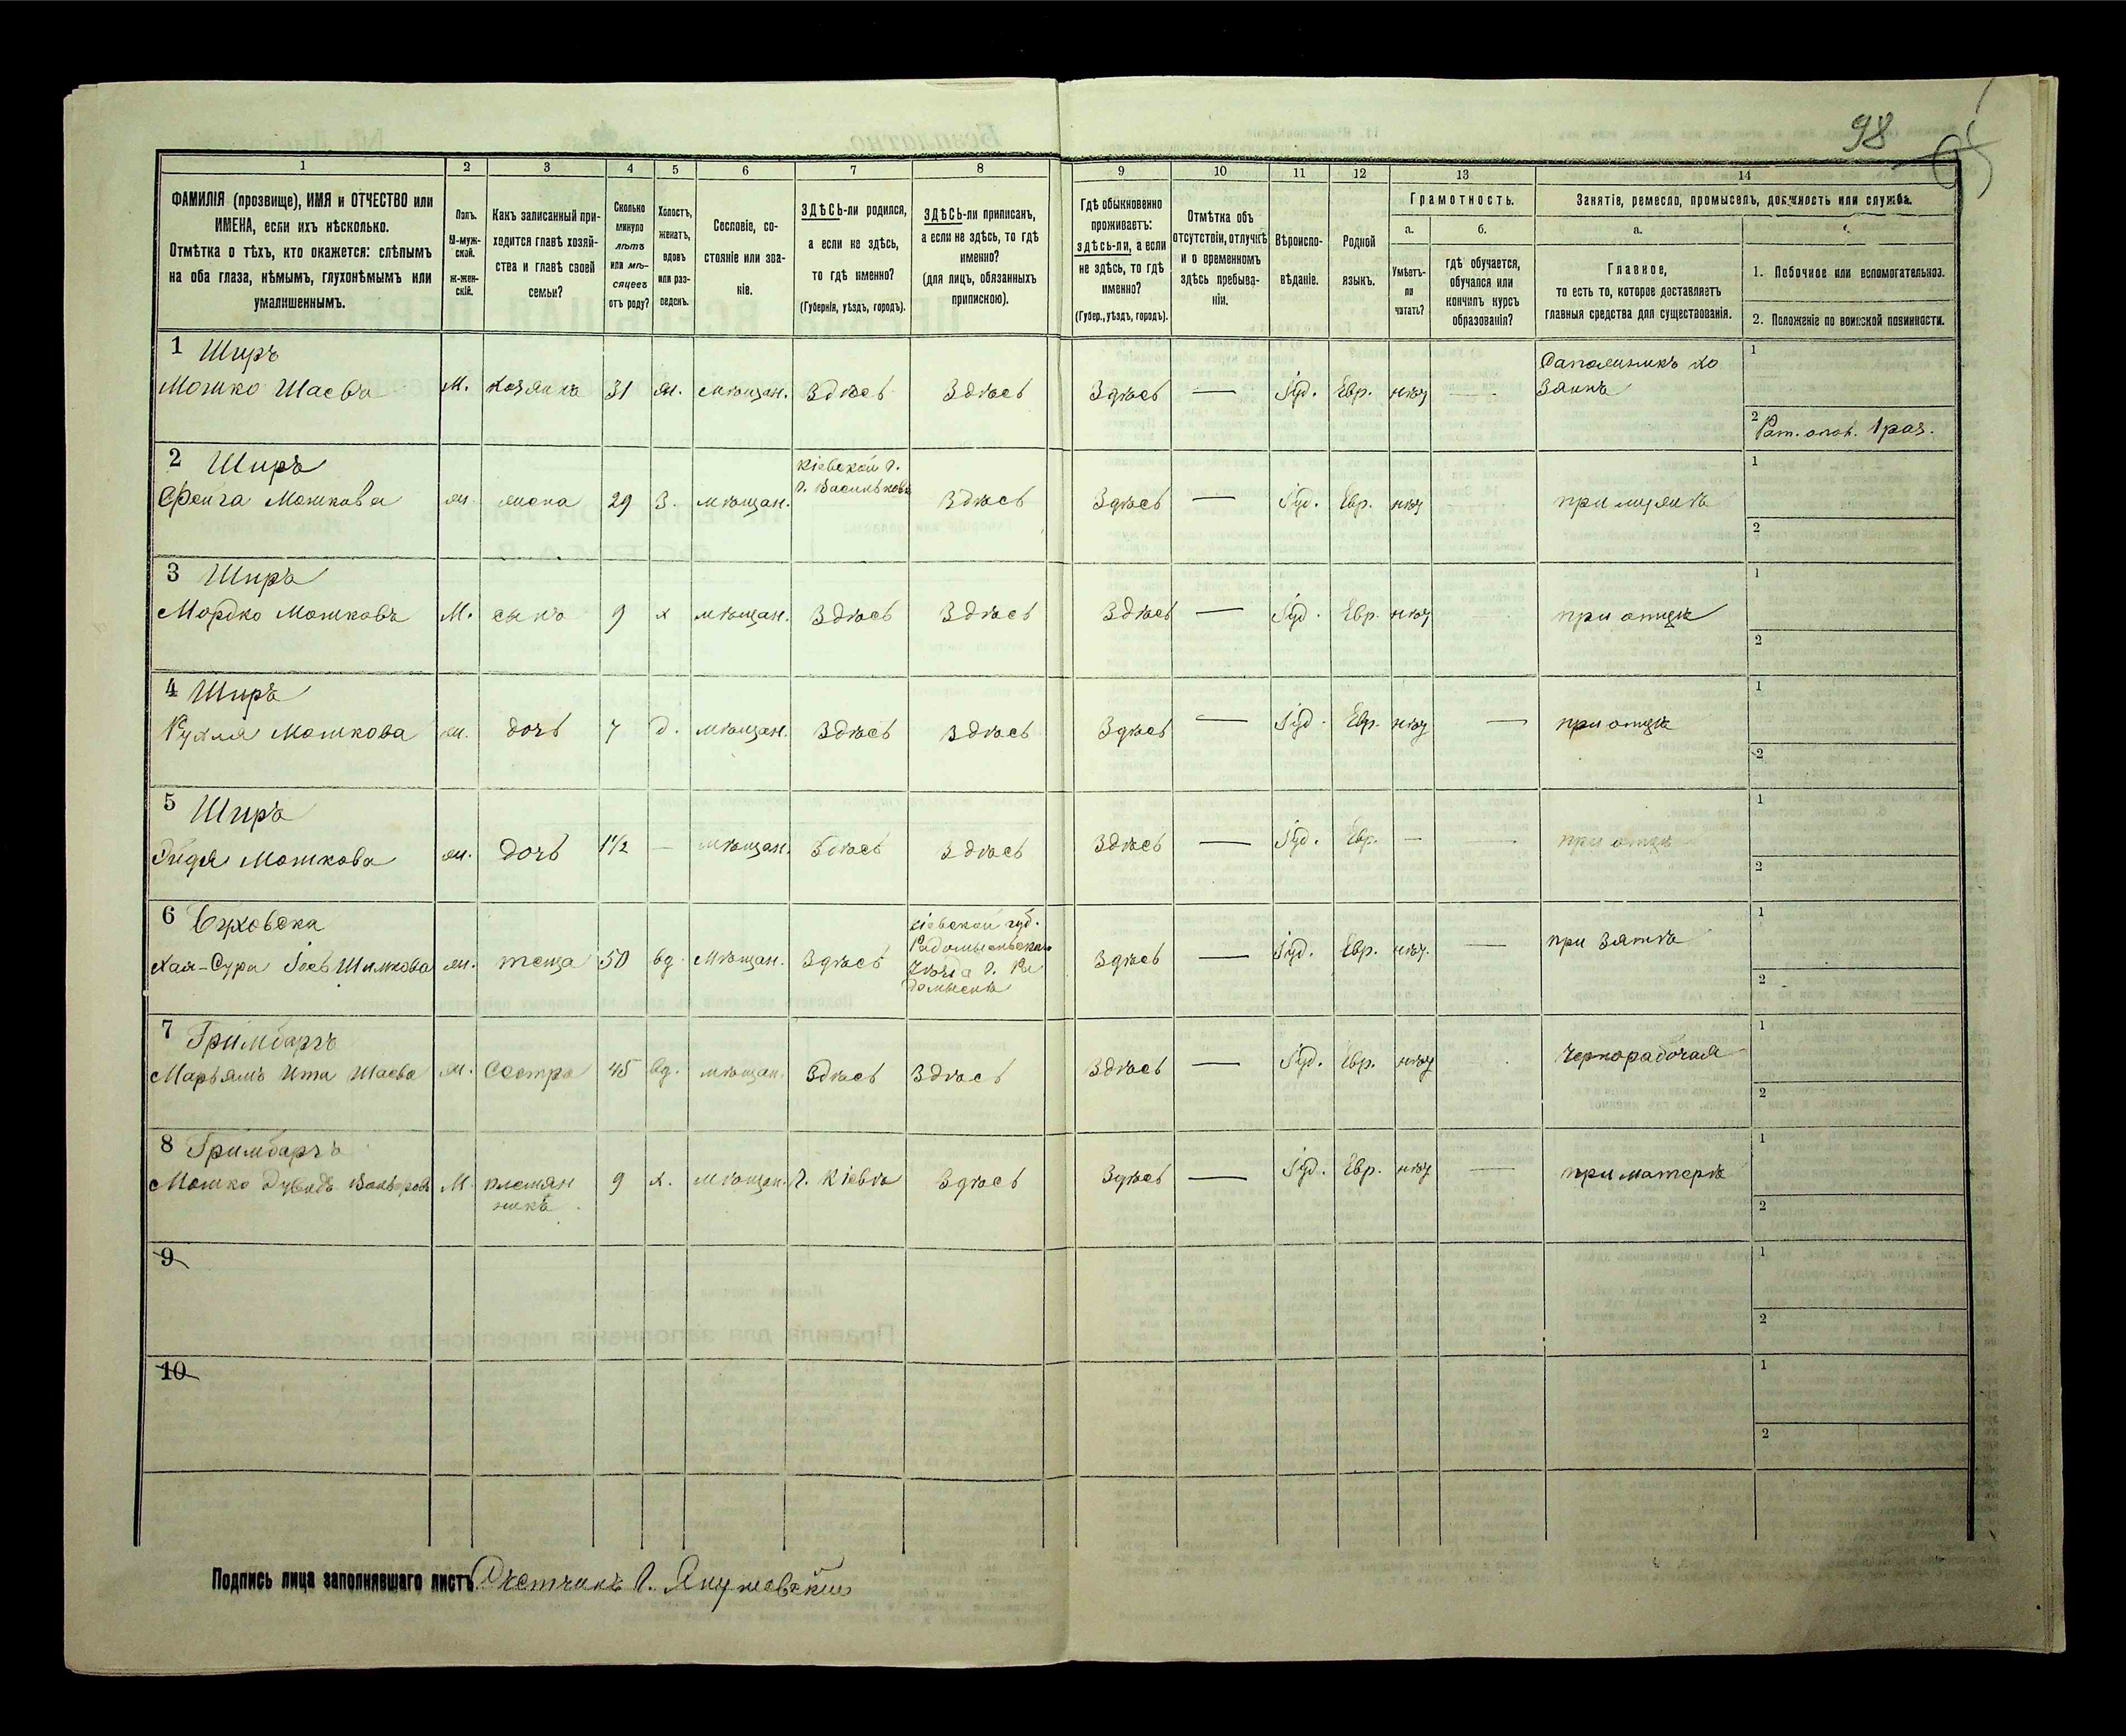 98
1 2 3 4 5 6 7 8 9 10 11 12 13 14
ФАМИЛІЯ (прозвище), ИМЯ и ОТЧЕСТВО или ИМЕНА, если ихъ нѣсколько.
Отмѣтка о тѣхъ, кто окажется: слѣпымъ на оба глаза, нѣмымъ, глухонѣмымъ или умалишеннымъ.
Полъ. М-муж-ской. ж-жен-скій.
Какъ записанный при-ходится главѣ хозяй-ства и главѣ своей семьи?
Сколько минуло лѣтъ или мѣ-сяцевъ отъ роду?
Холостъ, женатъ, вдовъ или раз-веденъ.
Сословіе, со-стояніе или зва-ніе.
ЗДѢСЬ-ли родился, а если не здѣсь, то гдѣ именно? (Губернія, уѣздъ, городъ).
ЗДѢСЬ-ли приписанъ, а если не здѣсь, то гдѣ именно? (для лицъ, обязанныхъ припискою).
Гдѣ обыкновенно проживаетъ: здѣсь-ли, а если не здѣсь, то гдѣ именно? (Губер., уѣздъ, городъ).
Отмѣтка объ отсутствіи, отлучкѣ и о временномъ здѣсь пребыва-ніи.
Вѣроиспо-вѣданіе.
Родной языкъ.
Грамотность.
а. Умѣетъ-ли читать?
б. гдѣ обучается, обучался или кончилъ курсъ образованія?
Занятіе, ремесло, промыселъ, должность или служба.
а. Главное, то есть то, которое доставляетъ главныя средства для существованія.
1. Побочное или вспомогательное.
2. Положеніе по воинской повинности.
1 Ширъ
Мошко Шаевъ М. хозяинъ 31 ж. мѣщан. Здѣсь Здѣсь Здѣсь — Іуд. Евр. нѣт — Сапожникъ хо
зяинъ
1
2 Рат. опол. 1 раз.
2 Ширъ
Фейга Мошкова ж. жена 29 З. мѣщан. Кіевской г.
г. Васильковъ Здѣсь Здѣсь — Іуд. Евр. нѣт при мужѣ
1
2
3 Ширъ
Мордко Мошковъ М. сынъ 9 х мѣщан. Здѣсь Здѣсь Здѣсь — Іуд. Евр. нѣт при отцѣ
1
2
4 Ширъ
Рухля Мошкова ж. дочь 7 д. мѣщан. Здѣсь Здѣсь Здѣсь — Іуд. Евр. нѣт — при отцѣ
1
2
5 Ширъ
Мошкова ж. дочь 1½ — мѣщан. Здѣсь Здѣсь Здѣсь — Іуд. Евр. — — при отцѣ
1
2
6
Хая-Сура Шимкова ж. теща 50 вд. Мѣщан. Здѣсь Кіевской губ.
Радомысльскаго
уѣзда г. Ра
домысль Здѣсь — Іуд. Евр. нѣт. — при зятѣ
1
2
7 Гримбаргъ
Марьямъ Ита Шаева ж. Сестра 45 вд. мѣщан. Здѣсь Здѣсь Здѣсь — Іуд. Евр. нѣт чернорабочая
1
2
8 Гримбаргъ
Мошко Дувидъ М племян
никъ 9 х. мѣщан. г. Кіевъ Здѣсь Здѣсь — Іуд. Евр. нѣт — при матерѣ
1
2
9
1
2
10
1
2
Подпись лица заполнявшаго листъ Счетчикъ